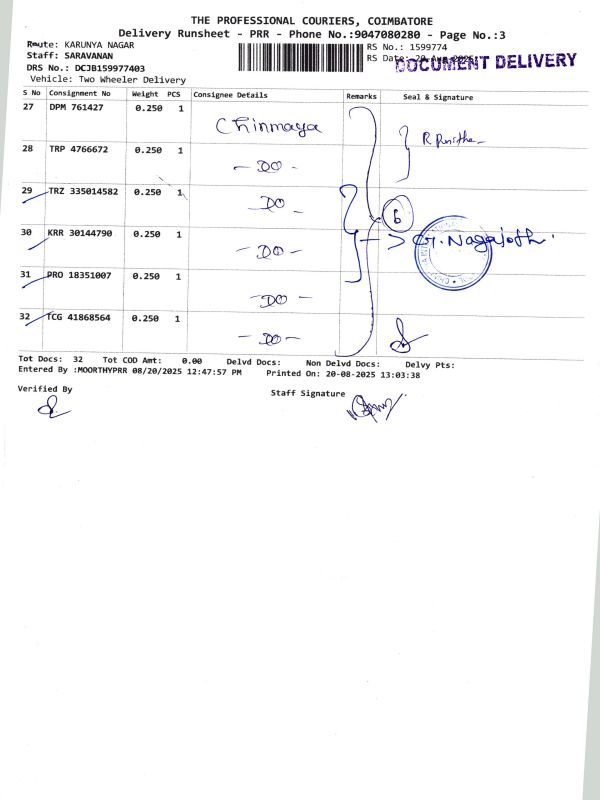 THE PROFESSIONAL COURIERS, COIMBATORE
Delivery Runsheet - PRR - Phone No.:9047080280 - Page No.:3
Route: KARUNYA NAGAR
RS No.: 1599774
Staff: SARAVANAN
RS Date: 20-Aug-2025
DOCUMENT DELIVERY
DRS No.: DCJB159977403
Vehicle: Two Wheeler Delivery
S No Consignment No Weight PCS Consignee Details Remarks Seal & Signature
27 DPM 761427 0.250 1 Chinmaya
28 TRP 4766672 0.250 1 - DO -
29 TRZ 335014582 0.250 1 DO -
6
30 KRR 30144790 0.250 1 - DO - G. Nagajothi
31 PRO 18351007 0.250 1 - DO -
32 TCG 41868564 0.250 1 - DO -
Tot Docs: 32 Tot COD Amt: 0.00 Delvd Docs: Non Delvd Docs: Delvy Pts:
Entered By :MOORTHYPRR 08/20/2025 12:47:57 PM Printed On: 20-08-2025 13:03:38
Verified By
Staff Signature